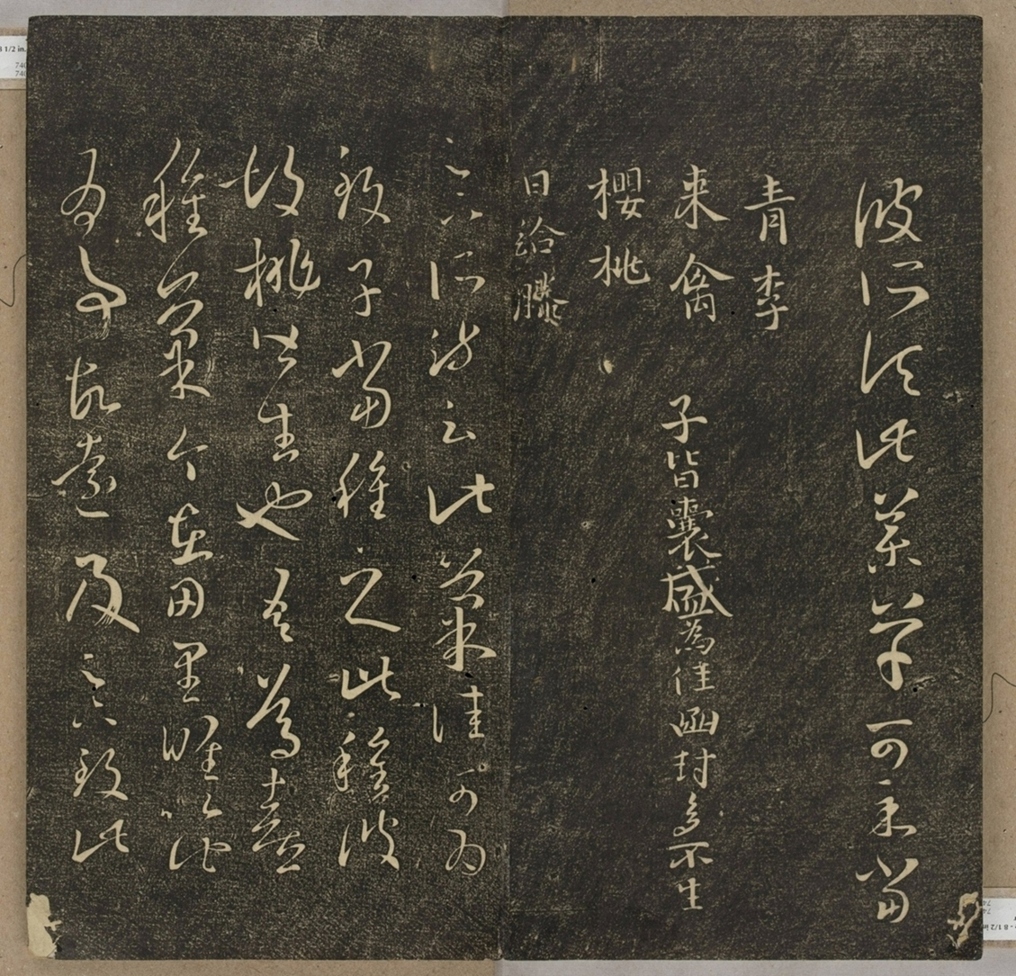 彼所須此藥草可示當
青李
来禽　子皆囊盛為佳函封多不生
櫻桃
日給滕
足下所疏云此菓佳可為
致子當種之此種彼
胡桃皆生也吾篤喜
種菓今在田里唯以此
為事故遠及足下致此
1/2 in.